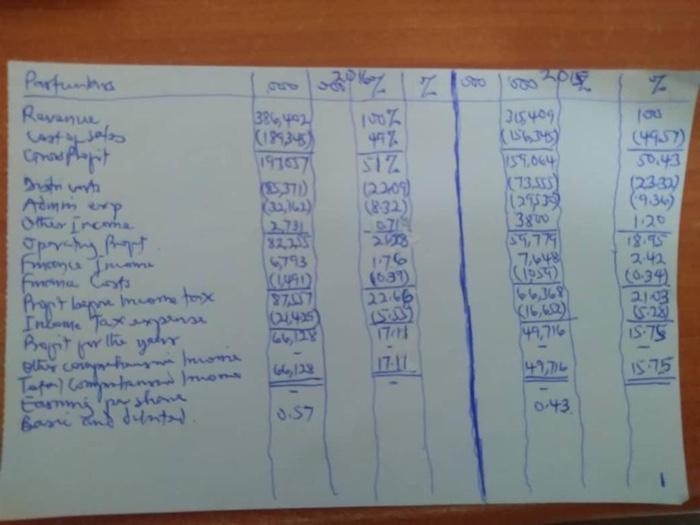 Particulars 000 000 2016 % % 000 000 2015 % %
Revenue 386,402 100% 315,409 100
Cost of sales (189,345) 49% (156,345) (49.57)
Gross Profit 197057 51% 159,064 50.43
Distri costs (85,371) (22.09) (73,555) (23.32)
Admin exp (32,162) (8.32) (29,530) (9.36)
Other Income 2,731 0.71 3800 1.20
Operating Profit 82,255 21.28 59,779 18.95
Finance Income 6,793 1.76 7,648 2.42
Finance Costs (1,491) (0.39) (1059) (0.34)
Profit before Income tax 87,557 22.66 66,368 21.03
Income Tax expense (21,425) (5.55) (16,652) (5.28)
Profit for the year 66,128 17.11 49,716 15.75
Other comprehensive Income - - - -
Total Comprehensive Income 66,128 17.11 49,716 15.75
Earning per share - - -
Basic and diluted 0.57 0.43
1